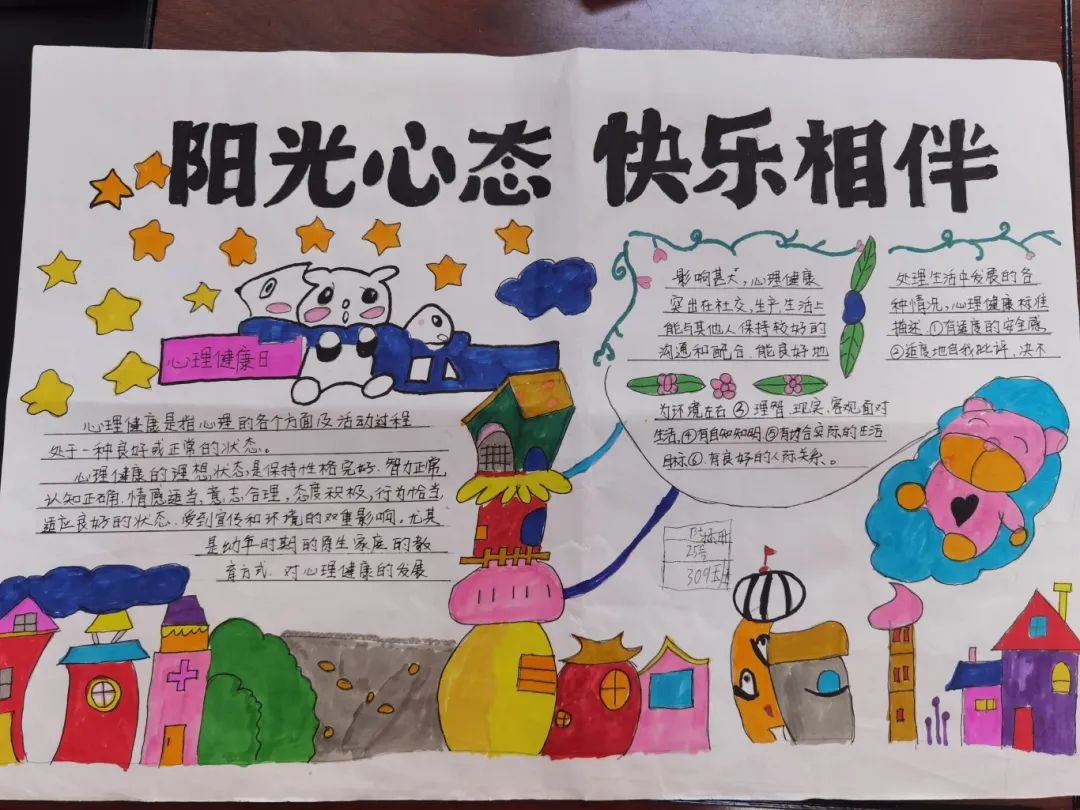 阳光心态 快乐相伴
心理健康日
心理健康是指心理的各个方面及活动过程
处于一种良好或正常的状态。
心理健康的理想状态,是保持性格完好.智力正常,
认知正确.情感适当、意志合理,态度积极,行为恰当,
适应良好的状态.受到宣传和环境的双重影响。尤其
是幼年时期的原生家庭的教
育方式.对心理健康的发展
影响甚大,心理健康
突出在社交,生产,生活上
能与其他人保持较好的
沟通和配合.能良好地
处理生活中发展的各
种情况,心理健康标准
描述.①有适度的安全感
②适度地自我批评,决不
为环境左右③理智.现实.客观面对
生活,④有自知知明.⑤有切合实际的生活
目标⑥有良好的人际关系。
25号
309班